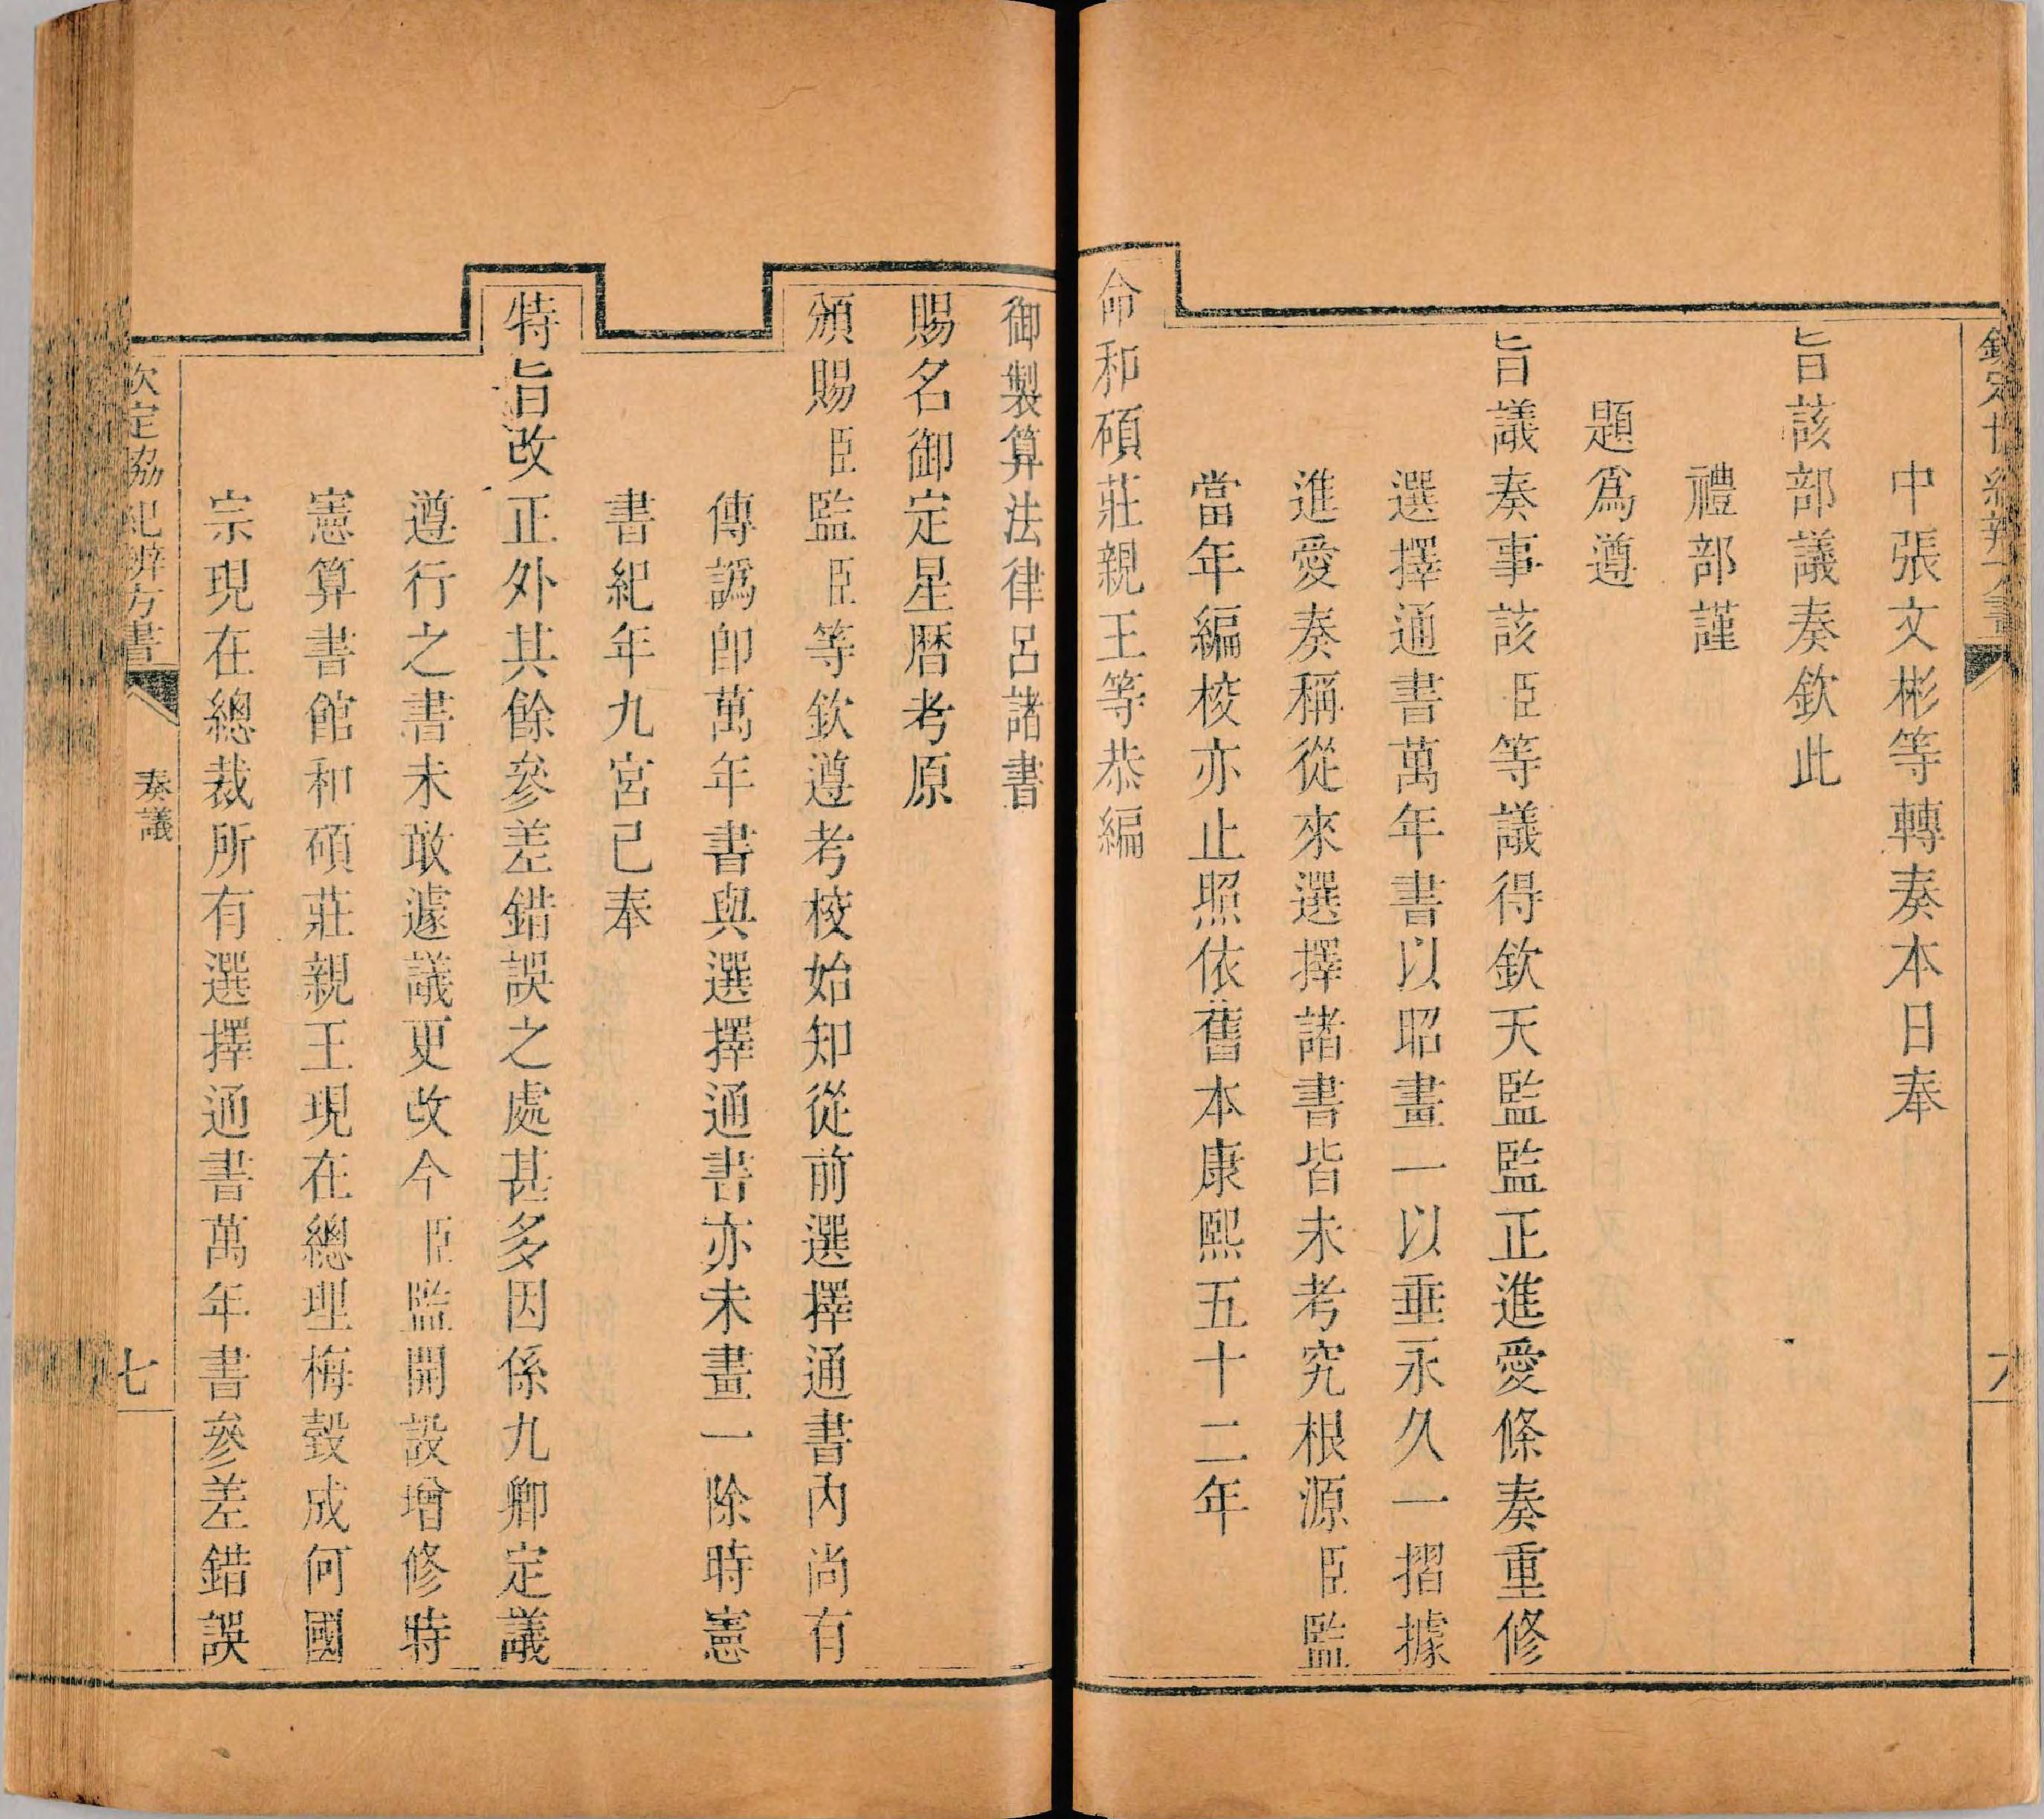 中張文彬等轉奏本日奉
旨該部議奏欽此
禮部謹
題爲遵
旨議奏事該臣等議得欽天監監正進愛條奏重修
選擇通書萬年書以昭畫一以垂永久一摺據
進愛奏稱從來選擇諸書皆未考究根源臣監
當年編校亦止照依舊本康熙五十二年
命和碩莊親王等恭編
御製算法律呂諸書
賜名御定星曆考原
頒賜臣監臣等欽遵考校始知從前選擇通書內尚有
傳譌卽萬年書與選擇通書亦未畫一除時憲
書紀年九宮已奉
特旨改正外其餘參差錯誤之處甚多因係九卿定議
遵行之書未敢遽議更改今臣監開設增修時
憲算書館和碩莊親王現在總理梅瑴成何國
宗現在總裁所有選擇通書萬年書參差錯誤
欽定協紀辨方書
奏議
七